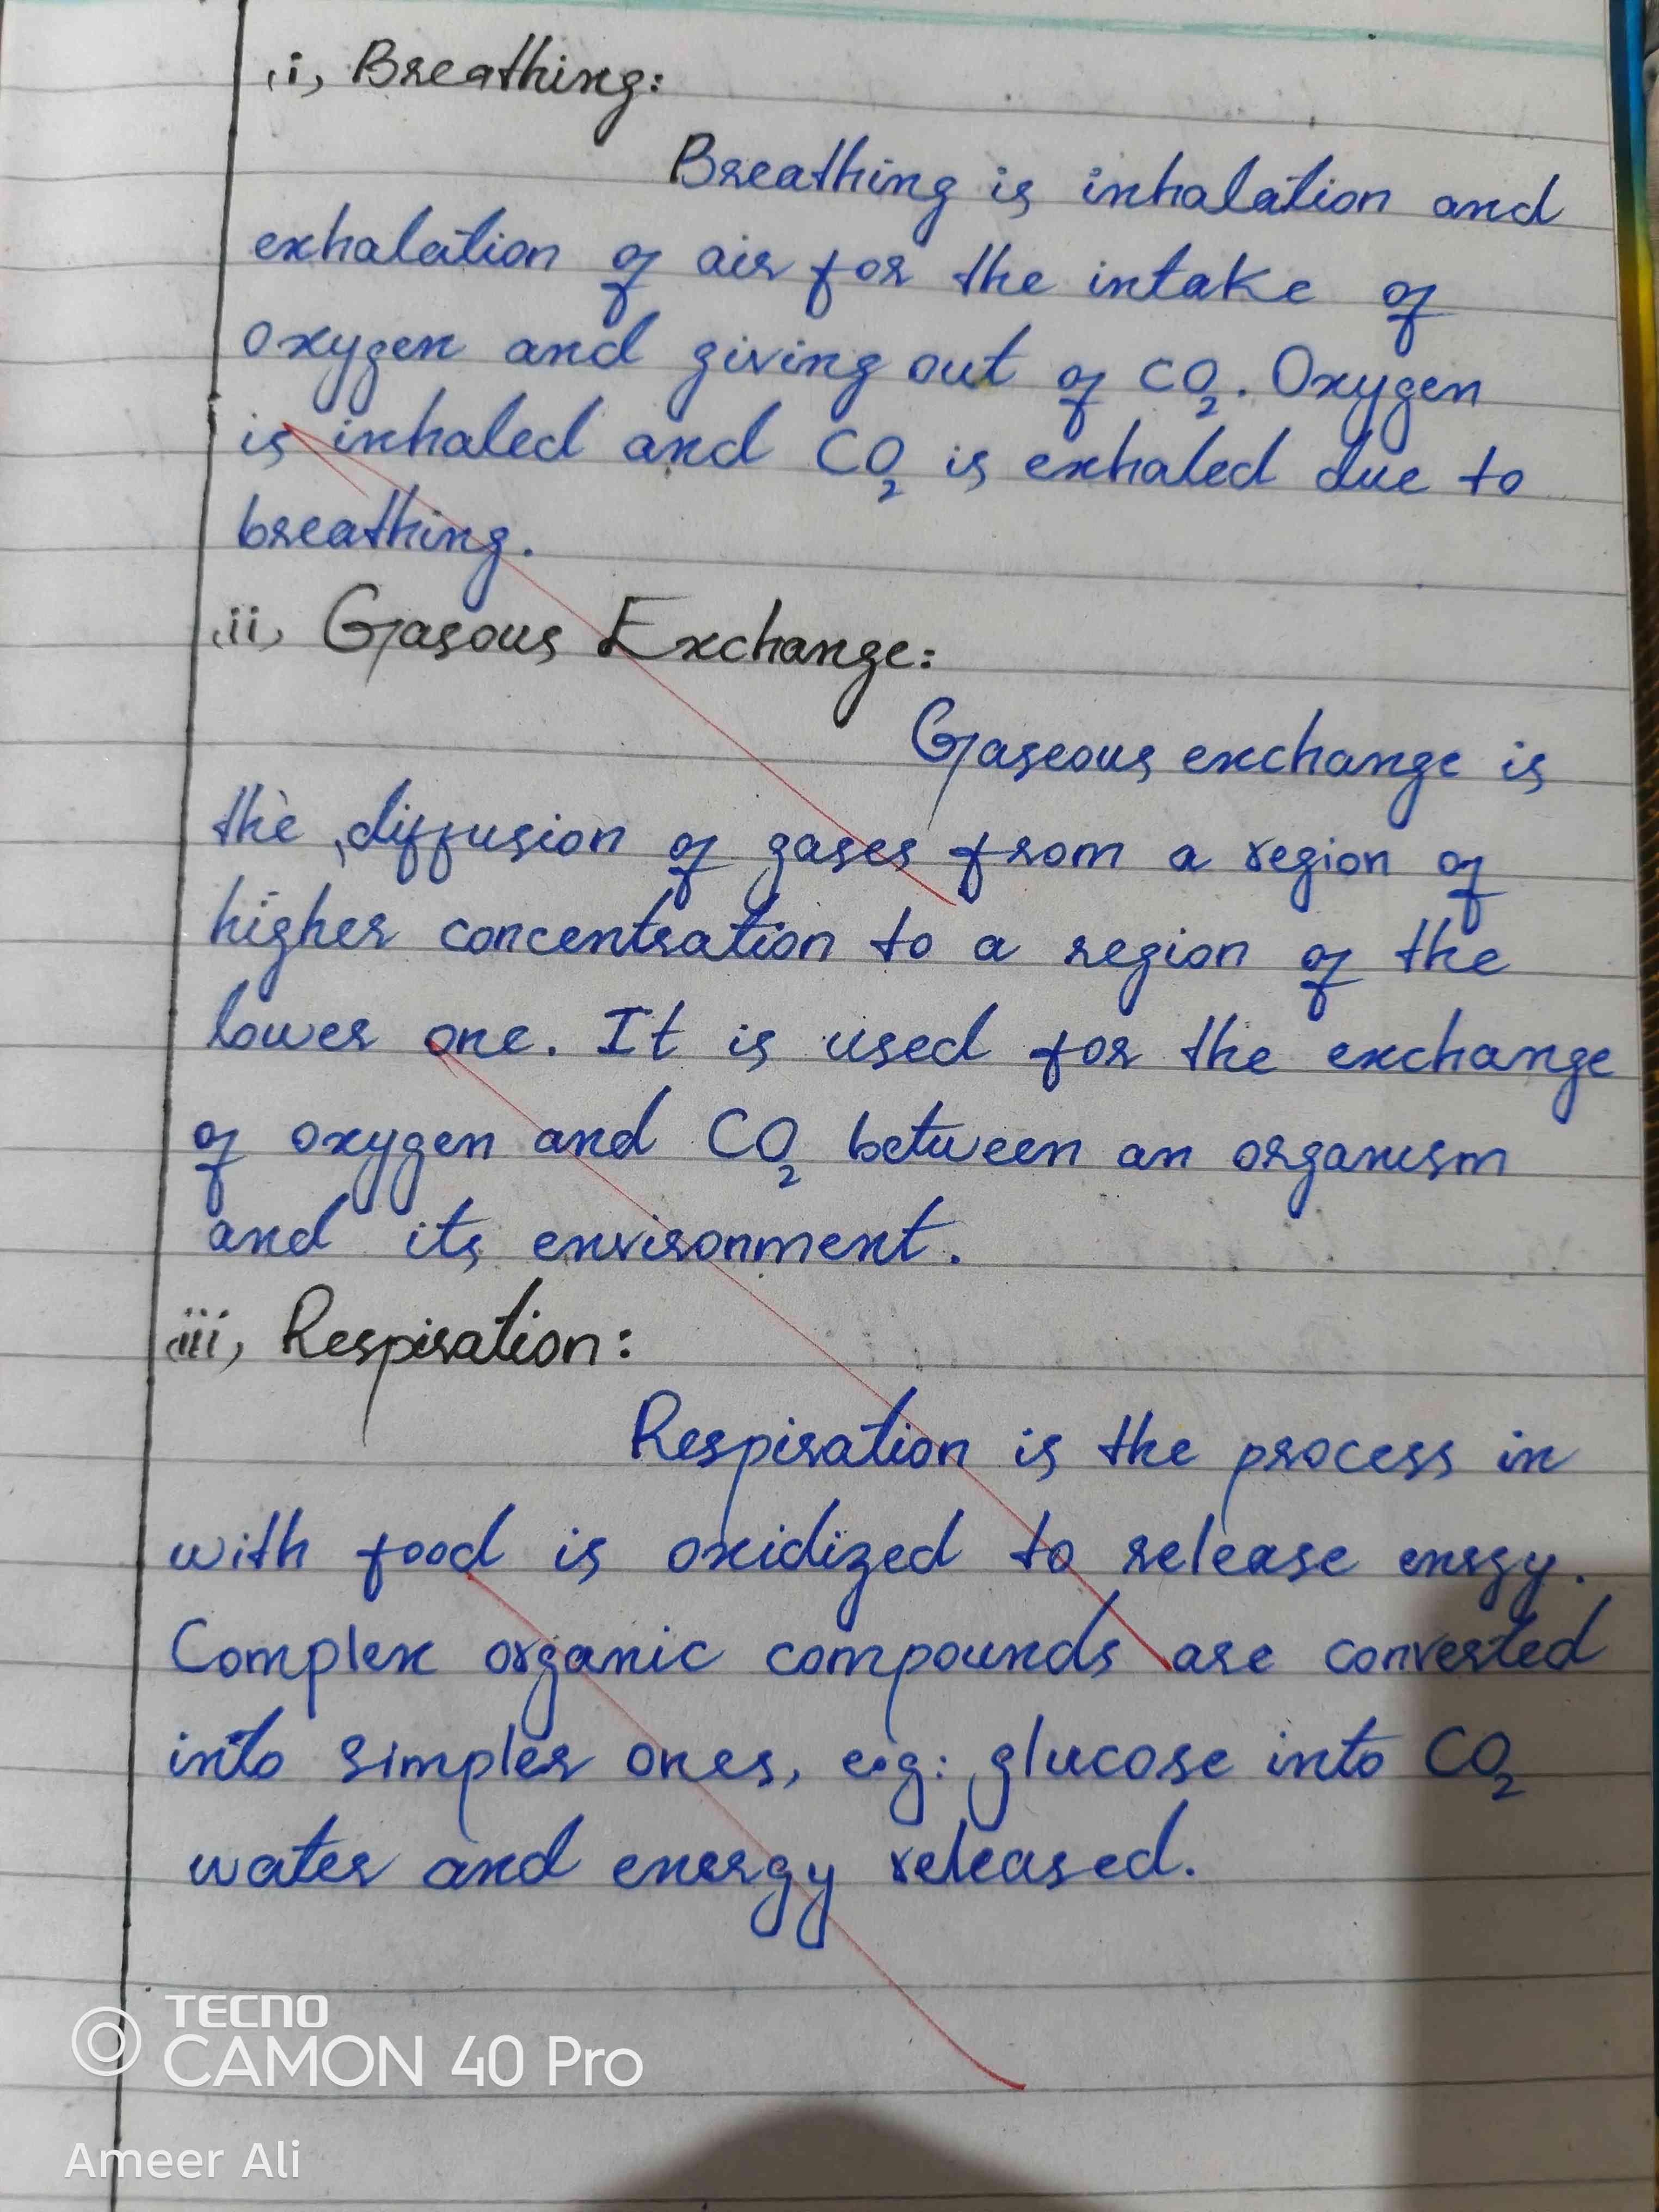 (i) Breathing:
Breathing is inhalation and
exhalation of air for the intake of
oxygen and giving out of CO₂. Oxygen
is inhaled and CO₂ is exhaled due to
breathing.
(ii) Gasous Exchange:
Gaseous exchange is
the diffusion of gases from a region of
higher concentration to a region of the
lower one. It is used for the exchange
of oxygen and CO₂ between an organism
and its environment.
(iii) Respiration:
Respiration is the process in
with food is oxidized to release enrgy.
Complex organic compounds are converted
into simpler ones, e.g: glucose into CO₂
water and energy released.
TECNO
CAMON 40 Pro
Ameer Ali